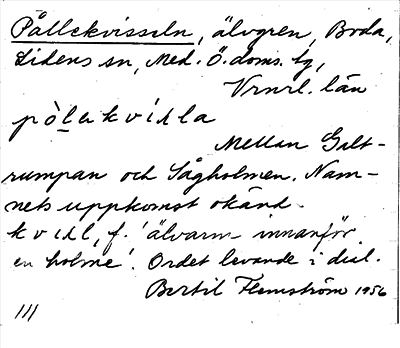 Pållekvisseln, älvgren, Boda,
Lidens sn, Med. Ö. doms. tg,
Vrnrl. län
pòlakvíḍla
Mellan Galt-
rumpan och Sågholmen. Nam-
nets uppkomst okänd.
kvidl, f. 'älvarm innanför
en holme'. Ordet levande i dial.
Bertil Flemström 1956
111